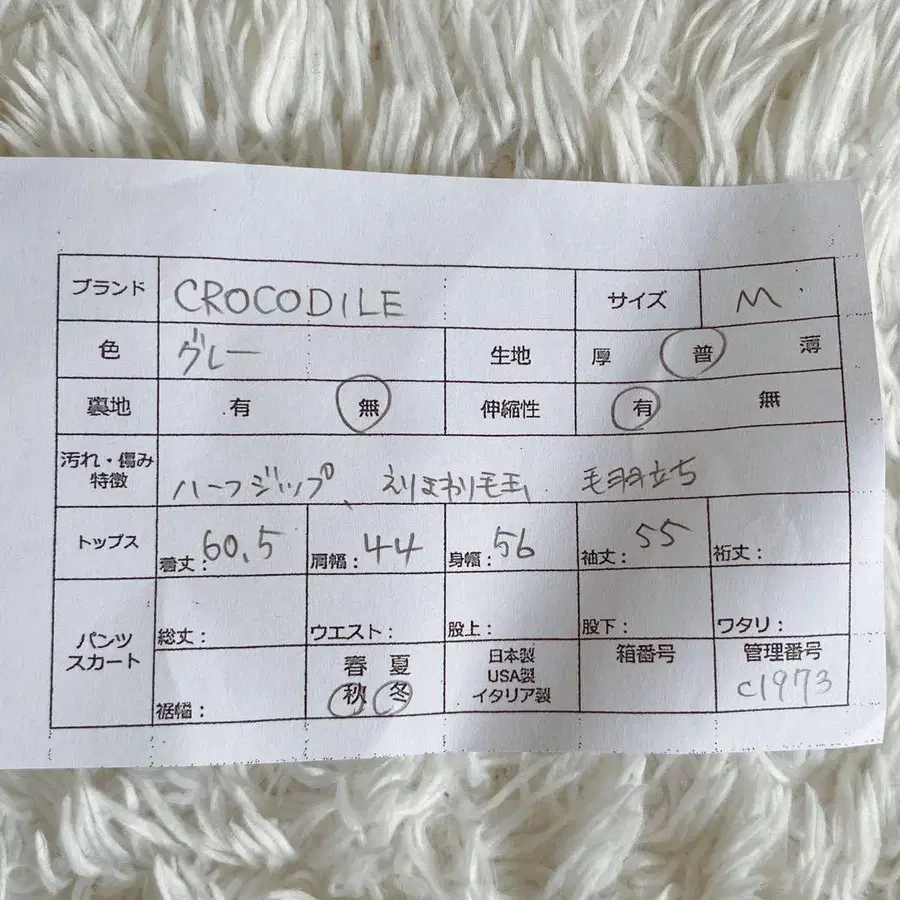 ブランド CROCODILE サイズ M
色 グレー 生地 厚 普 薄
裏地 有 無 伸縮性 有 無
汚れ・傷み
特徴 ハーフジップ、えりまわり毛玉、毛羽立ち
トップス 着丈：60.5 肩幅：44 身幅：56 袖丈：55 裄丈：
パンツ
スカート 総丈： ウエスト： 股上： 股下： ワタリ：
裾幅： 春 夏
秋 冬 日本製
USA製
イタリア製 箱番号 管理番号
C1973